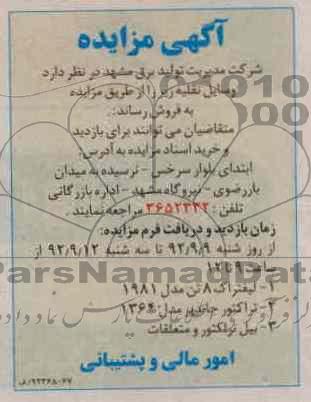 آگهی مزایده
شرکت مدیریت تولید برق مشهد در نظر دارد
وسایل نقلیه زیر را از طریق مزایده
به فروش رساند:
متقاضیان می توانند برای بازدید
و خرید اسناد مزایده به آدرس:
ابتدای بلوار سرخس - نرسیده به میدان
بار رضوی - نیروگاه مشهد - اداره بازرگانی
تلفن: ۳۶۵۲۳۴۲ مراجعه نمایند.
زمان بازدید و دریافت فرم مزایده:
از روز شنبه ۹۲/۹/۹ تا سه شنبه ۹۲/۹/۱۲ از
ساعت ۹ تا ۱۲
۱- لیفتراک ۸ تن مدل ۱۹۸۱
۲- تراکتور جاندیر مدل ۱۳۶۴
۳- بیل تراکتور و متعلقات
امور مالی و پشتیبانی
۹۲۳۶۸۰۶۷/ف
ParsNamadData